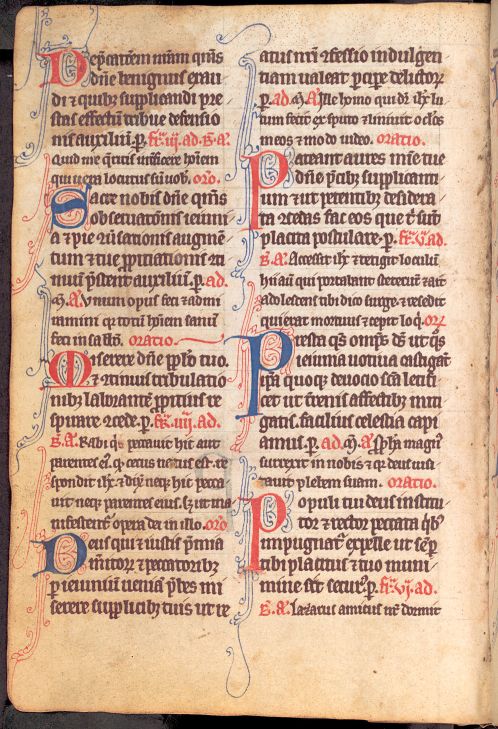 Deprecationem nostram quesumus
domine benignus exau
di et quibus supplicandi pre
stas effectum tribue defensio
nis auxilium. p. ffr. iij. ad. B. A.
Quid me queritis interficere hominem
qui vera locutus sum vobis. oro.
Sacre nobis domine quesumus
observationis ieiuni
a et pie conversationis augmen
tum et tue propitiationis conti
nuum prestent auxilium. p. ad.
M. A. Unum opus feci et admi
ramini quia totum hominem sanum
feci in sabbato. oratio.
Miserere domine populo tuo.
et continuis tribulatio
nibus laborantem propitius re
spirare concede. p. ffr. iiij. ad.
B. A. Rabi quis peccavit hic aut
parentes eius quia cecus natus est. re
spondit ihesus et dixit neque hic pecca
vit neque parentes eius. sed ut ma
nifestentur opera dei in illo. oro.
Deus qui et iustis premia
meritorum et peccatoribus
per ieiunium veniam prebes mi
serere supplicibus tuis ut re
atus nostri confessio indulgen
tiam valeat percipere delictorum
p. ad. M. A. Ille homo qui dicitur ihesus lu
tum fecit ex sputo et linivit oculos
meos et modo video. oratio.
Pateant aures misericordie tue
domine precibus supplicanti
um et ut petentibus desidera
ta concedas fac eos que tibi sunt
placita postulare. p. ffr. v. ad.
B. A. Accessit ihesus et tetigit loculum
hii autem qui portabant steterunt et ait
adolescens tibi dico surge. et resedit
qui erat mortuus et cepit loqui. oro
Presta quesumus omnipotens deus ut quos
ieiunia votiva castigant
ipsa quoque devocio sancta letifi
cet ut terrenis affectibus miti
gatis. facilius celestia capi
amus. p. ad. M. A. propheta magnus
surrexit in nobis et quia deus visi
tavit plebem suam. oratio.
Populi tui deus institu
tor et rector peccata quibus
impugnatur expelle ut semper
tibi placitus et tuo muni
mine sit securus. p. ffr. vi. ad.
B. A. Lazarus amicus noster dormit